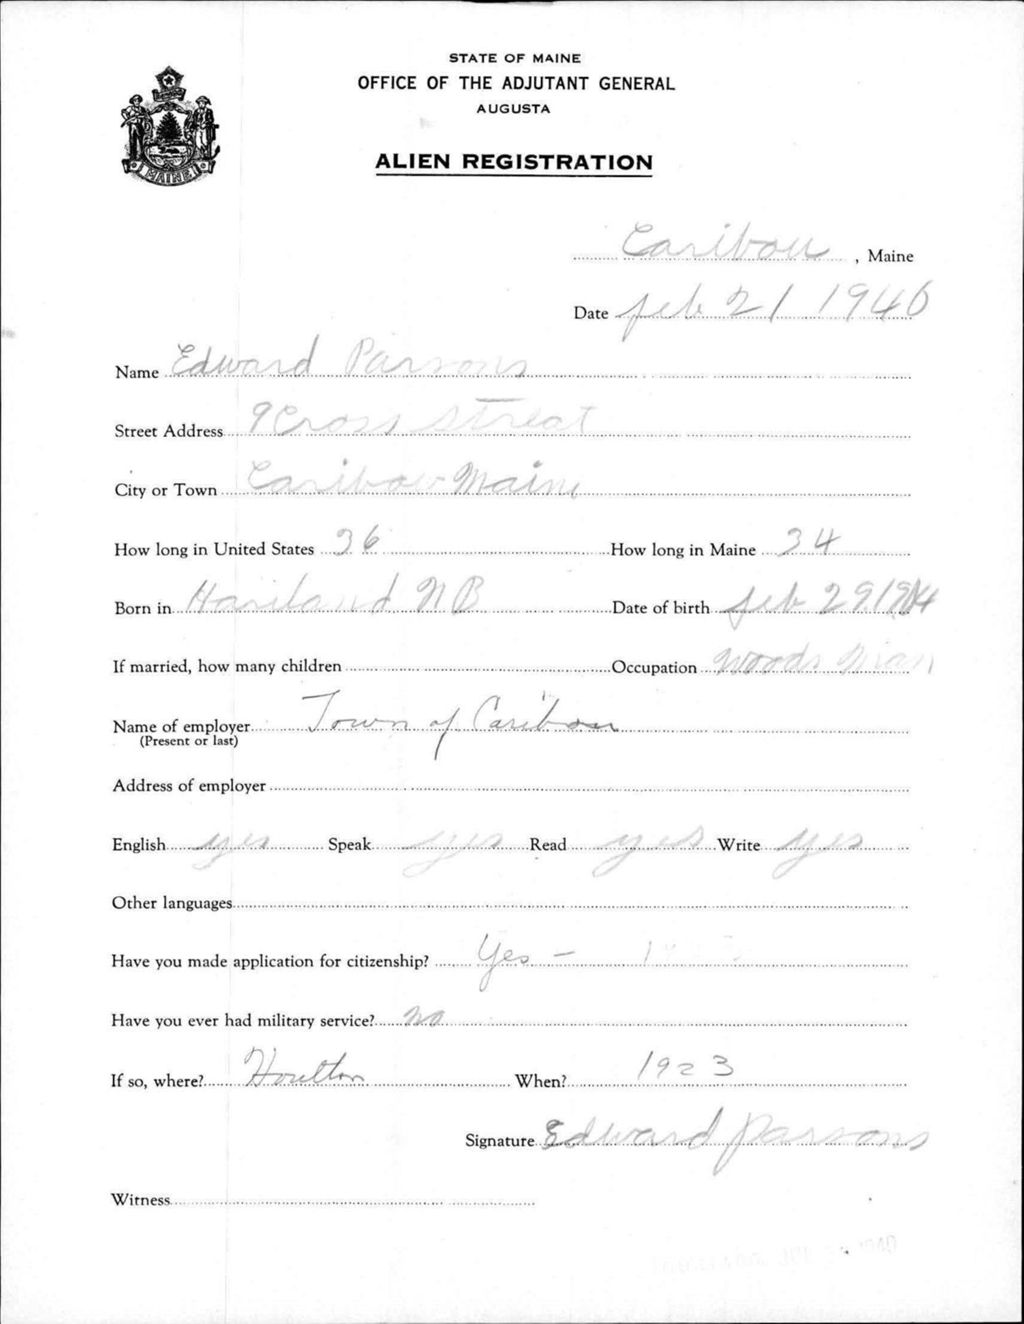 STATE OF MAINE
OFFICE OF THE ADJUTANT GENERAL
AUGUSTA
MAINE
ALIEN REGISTRATION
Caribou, Maine
Date Feb 21 1940
Name Edward Parsons
Street Address 9 Cross Streat
City or Town Caribou Maine
How long in United States 36 How long in Maine 34
Born in Hartland NB Date of birth Feb 29 1904
If married, how many children Occupation Woods Man
Name of employer Town of Caribou
(Present or last)
Address of employer
English yes Speak yes Read yes Write yes
Other languages
Have you made application for citizenship? Yes –
Have you ever had military service? no
If so, where? Houlton When? 1923
Signature Edward Parsons
Witness